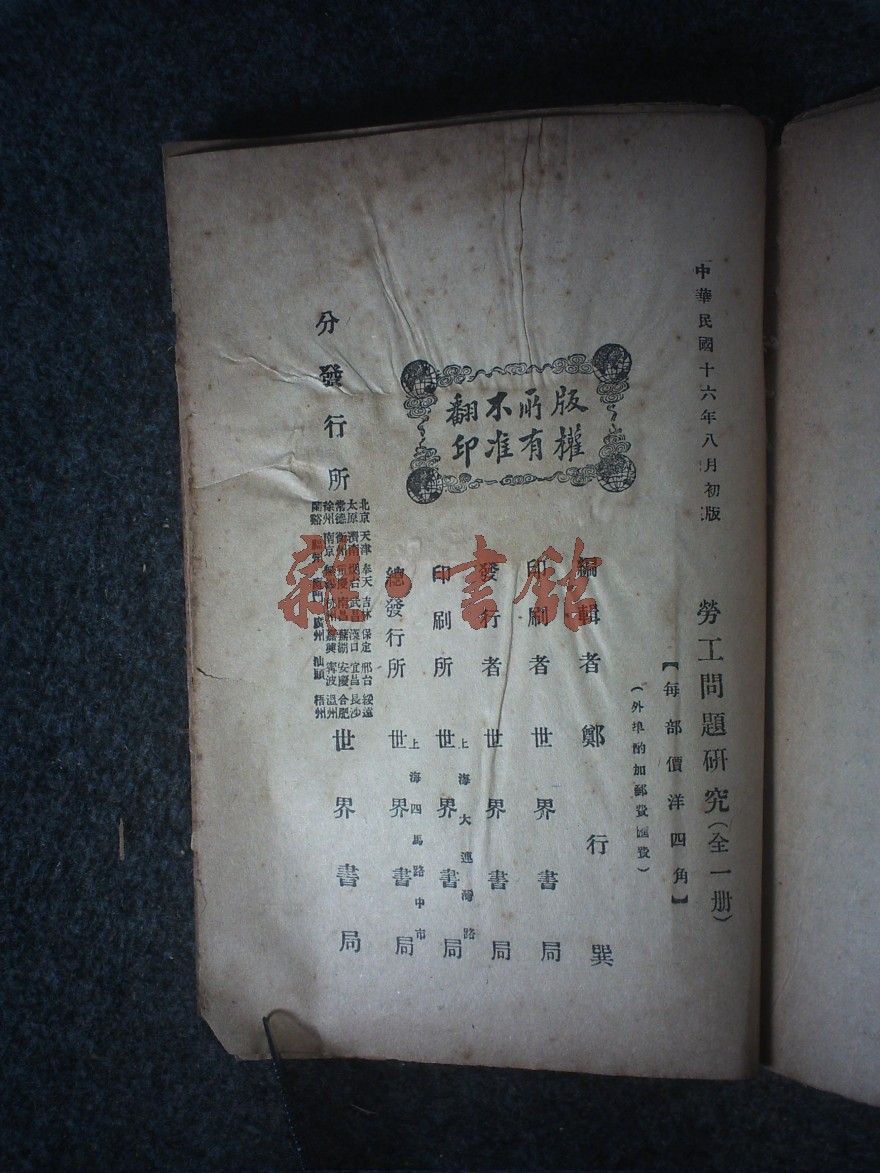 中華民國十六年八月初版
勞工問題研究（全一册）
【每部價洋四角】
（外埠酌加郵費匯費）
版權
所有
不准
翻印
編輯者 鄭行巽
印刷者 世界書局
發行者 世界書局
印刷所 上海大連灣路 世界書局
總發行所 上海四馬路中市 世界書局
分發行所
北京 天津 奉天 吉林 保定 邢台 綏遠
太原 濟南 烟台 武昌 漢口 宜昌 長沙
常德 衡州 重慶 南昌 蕪湖 安慶 合肥
徐州 南京 杭州 嘉興 寧波 溫州
蘭谿 廈門 廣州 汕頭 梧州
世界書局
雜·書館